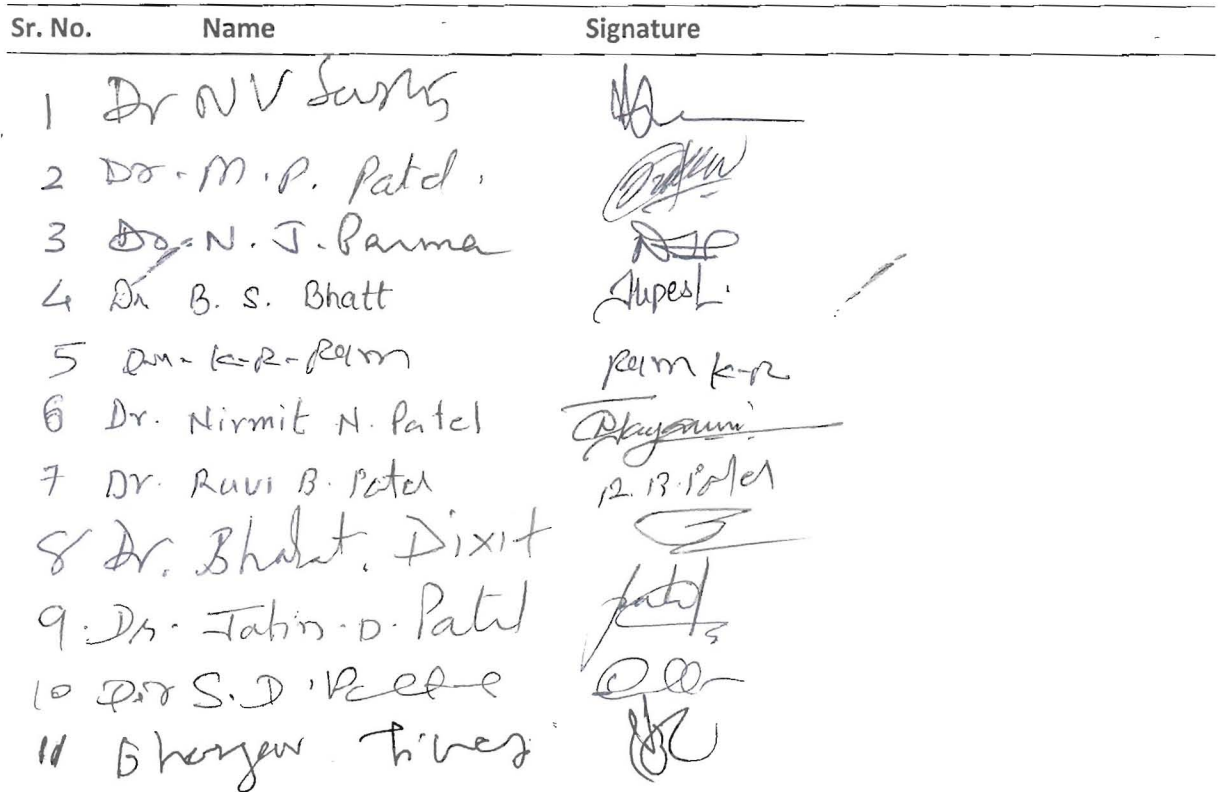 Sr. No. Name Signature
1 Dr NV Sastry
2 Dr. M.P. Patel.
3 Dr. N. J. Parma NJP
4 Dr B. S. Bhatt Jupesh.
5 Dr. K-R-Ram Ram K-R
6 Dr. Nirmit N. Patel
7 Dr. Ravi B. Patel R.B. Patel
8 Dr. Bharat. Dixit
9. Dr. Jatin. D. Patel Patel
10 Dr S.D. Patel
11 Bhargav